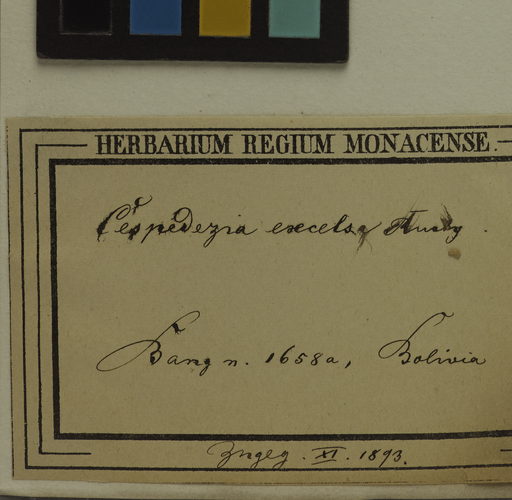 HERBARIUM REGIUM MONACENSE.
Cespedezia excelsa Rusby.
Bang n. 1658a, Bolivia
XI. 1893.